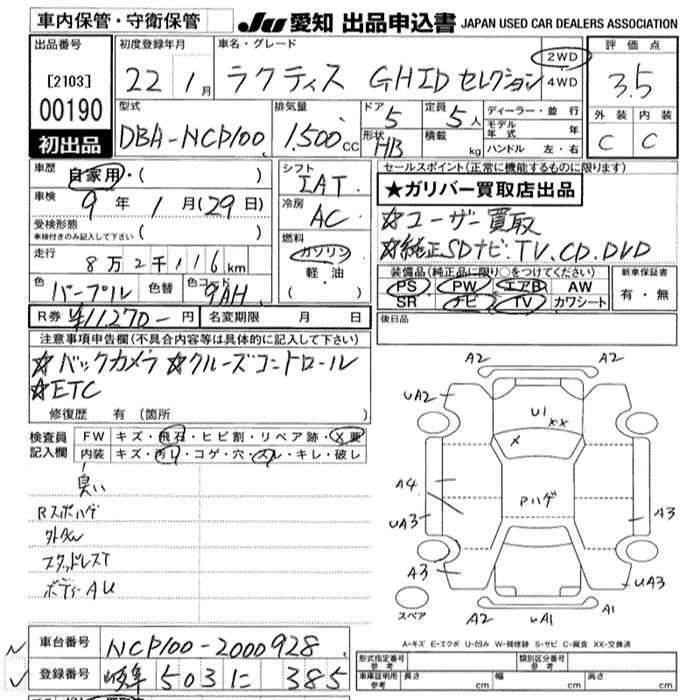 車内保管・守衛保管
JU 愛知 出品申込書 JAPAN USED CAR DEALERS ASSOCIATION
出品番号
[2103]
00190
初出品
初度登録年月
22年 1月
車名・グレード
ラクティス GHIDセレクション
2WD
4WD
評価点
3.5
外装 内装
C C
型式
DBA-NCP100
排気量
1,500cc
ドア
5
定員
5人
形状
HB
積載
kg
ディーラー・並行
モデル年式 年
ハンドル 左・右
車歴
自家用・( )
車検
9年 1月(29日)
受検形態
車検付きのみ記入して下さい( )
走行
8万2千116km
色
パープル
色替
色コード
9AH
シフト
IAT
冷房
AC
燃料
ガソリン
軽・油
( )
セールスポイント(正常に機能するものに限ります)
★ガリバー買取店出品
☆ユーザー買取
☆純正SDナビ.TV.CD.DVD
装備品(純正品に限り○をつけてください)
PS PW エアB AW
SR ナビ TV カワシート
新車保証書
有・無
R券 ¥11,270-円
名変期限 月 日
後日品
注意事項申告欄(不具合内容等は具体的に記入して下さい)
☆バックカメラ ☆クルーズコントロール
☆ETC
修復歴 有(箇所 )
検査員記入欄
FW キズ・飛石・ヒビ割・リペア跡・X要
内装 キズ・汚れ・コゲ・穴・スレ・キレ・破レ
臭い
Rスポハゲ
スタッドレスT
ボディーAU
A2 A2
UA2
U1
XX
X
A4
Pハゲ
UA3
A3
A3
UA3
スペア
A2 UA1 A1
A-キズ E-エクボ U-凹み W-補修跡 S-サビ C-腐食 XX-交換済
車台番号
NCP100-2000928
登録番号
岐阜 503 に 385
型式指定番号 参考
類別区分番号 参考
車庫証明用 参考
長さ cm
幅 cm
高さ cm